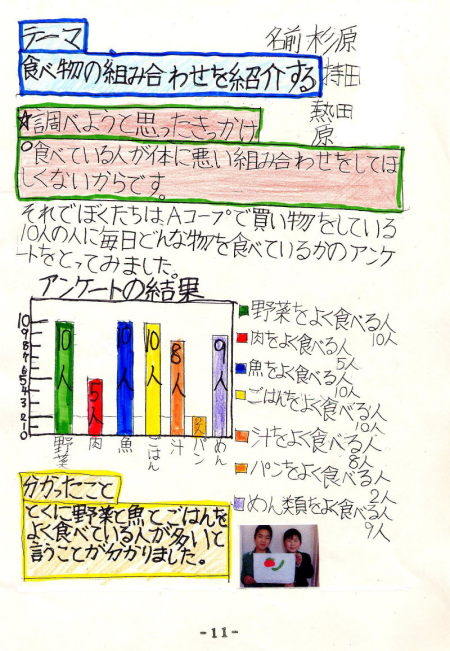 テーマ
食べ物の組み合わせを紹介する
名前 杉原
持田
熱田
原
☆調べようと思ったきっかけ
○食べている人が体に悪い組み合わせをしてほ
しくないからです。
それでぼくたちは、Aコープで買い物をしている
10人の人に毎日どんな物を食べているかのアンケ
ートをとってみました。
アンケートの結果
10
9
8
7
6
5
4
3
2
1
0
10人
5人
10人
10人
8人
2人
9人
野菜
肉
魚
ごはん
汁
パン
めん
野菜をよく食べる人
10人
肉をよく食べる人
5人
魚をよく食べる人
10人
ごはんをよく食べる人
10人
汁をよく食べる人
8人
パンをよく食べる人
2人
めん類をよく食べる人
9人
分かったこと
とくに野菜と魚とごはんを
よく食べている人が多いと
言うことが分かりました。
-11-